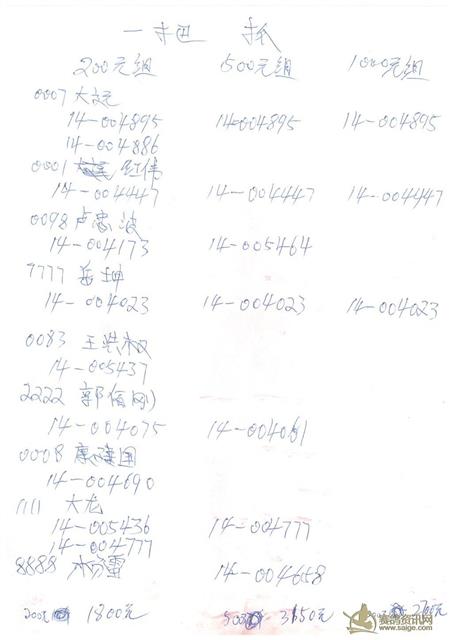 一把抓
200元组 500元组 1000元组
0007 大元
14-004895 14-004895 14-004895
14-004886
0001 红伟
14-004447 14-004447 14-004447
0098 卢忠波
14-004173 14-005464
7777 岳坤
14-004023 14-004023 14-004023
0083 王洪权
14-005437
2222 郭俊刚
14-004075 14-004061
0008 康建国
14-004690
1111 大龙
14-005436 14-004777
14-004777
8888 14-004658
200元 1800元 500 3150元
赛鸽资讯网
www.saige.com